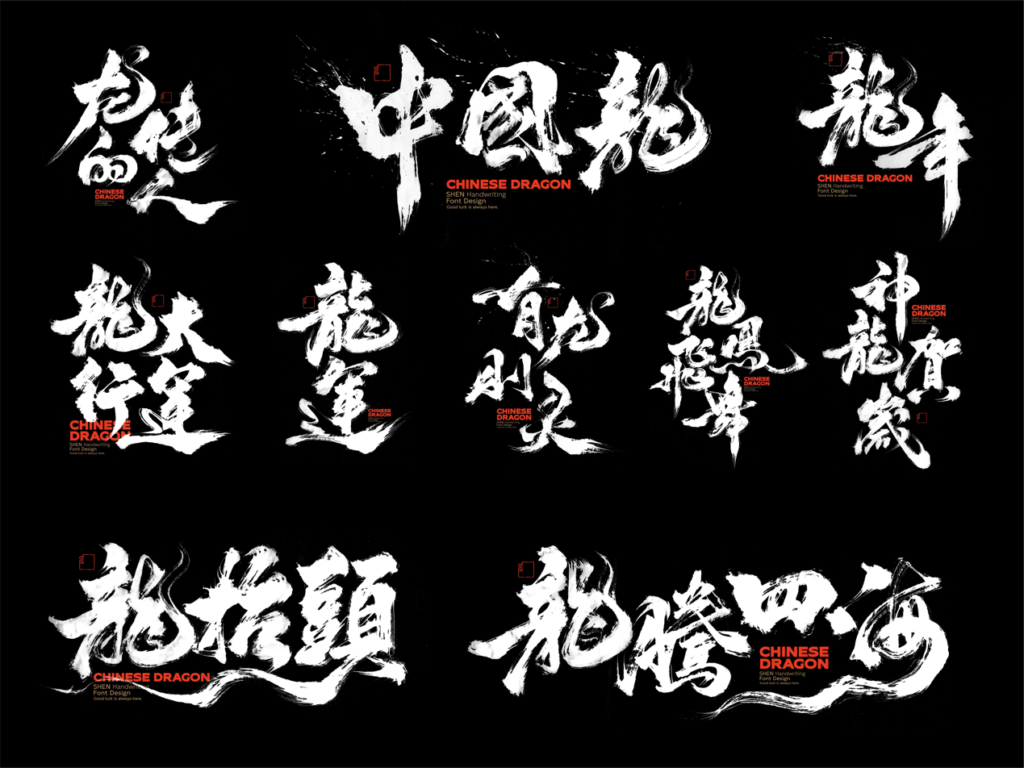 龙的
传人
CHINESE
DRAGON
中國龍
CHINESE DRAGON
SHEN Handwriting
Font Design
Good luck is always here.
龍年
CHINESE DRAGON
SHEN Handwriting
Font Design
Good luck is always here.
龍行
大運
CHINESE
DRAGON
SHEN Handwriting
Font Design
Good luck is always here.
龍運
CHINESE
DRAGON
有
龙
則
灵
CHINESE
DRAGON
龍飛
鳳舞
CHINESE
DRAGON
神龍
賀歲
CHINESE
DRAGON
龍抬頭
CHINESE DRAGON
SHEN Handwriting
Font Design
Good luck is always here.
龍騰四海
CHINESE
DRAGON
SHEN Handwriting
Font Design
Good luck is always here.